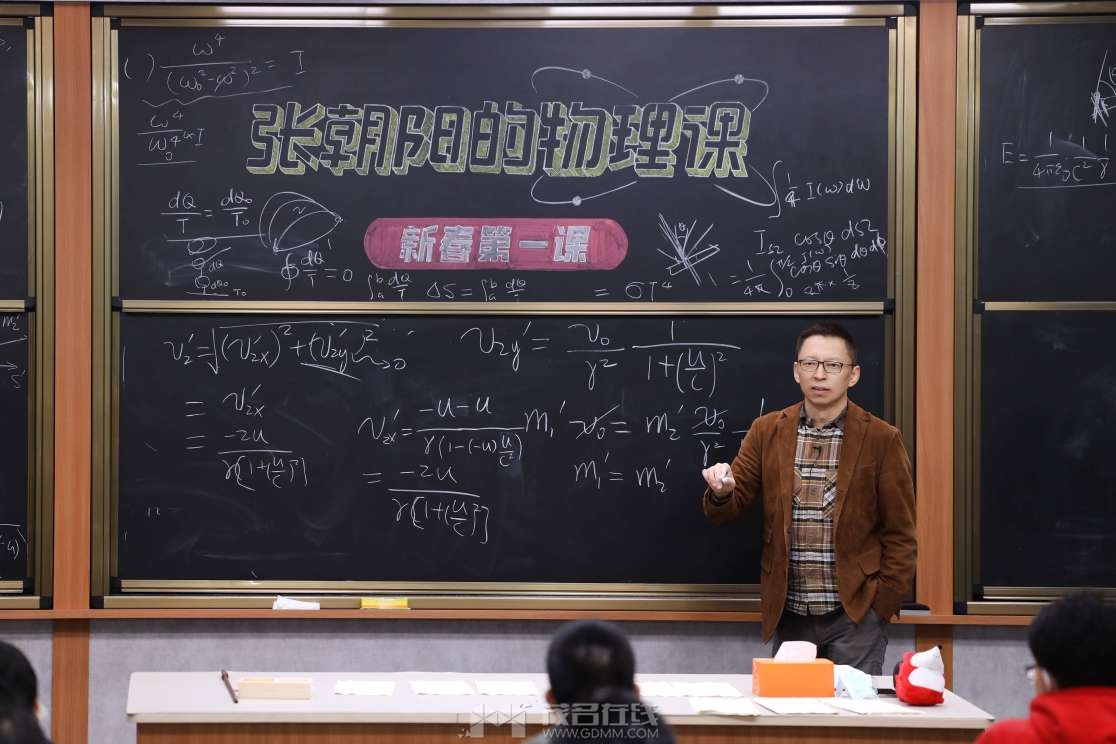 ( ) ω⁴/(ω₀²-ω²)² = I
ω⁴/ω₀⁴ I
张朝阳的物理课
新春第一课
dQ/T = dQ₀/T₀
∮ dQ/T = 0
∫ₐᵇ dQ/T ΔS = ∫ₐᵇ dQ/T = σT⁴
I(ω)dω
cosθ dΩ
E = 1/(4πε₀c²)
v₂' = √((v₂ₓ')² + (v₂y')²) → 0
= v₂ₓ'
= -2u/(γ[1+(u/c)²])
v₂y' = v₀/γ² 1/(1+(u/c)²)
v₂ₓ' = (-u-u)/(γ(1-(-u)u/c²))
= -2u/(γ[1+(u/c)²])
m₁' v₀ = m₂' v₀/γ²
m₁' = m₂'
茂名在线
WWW.GDMM.COM